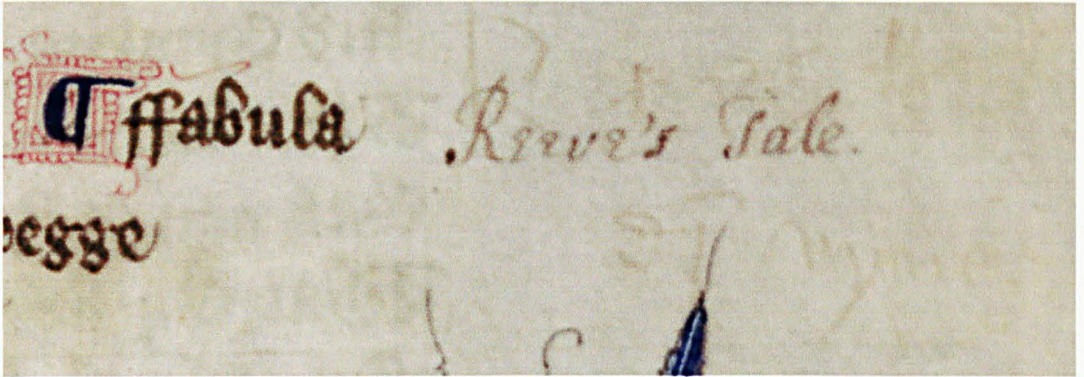 ¶ ffabula Reeve's Tale.
egge